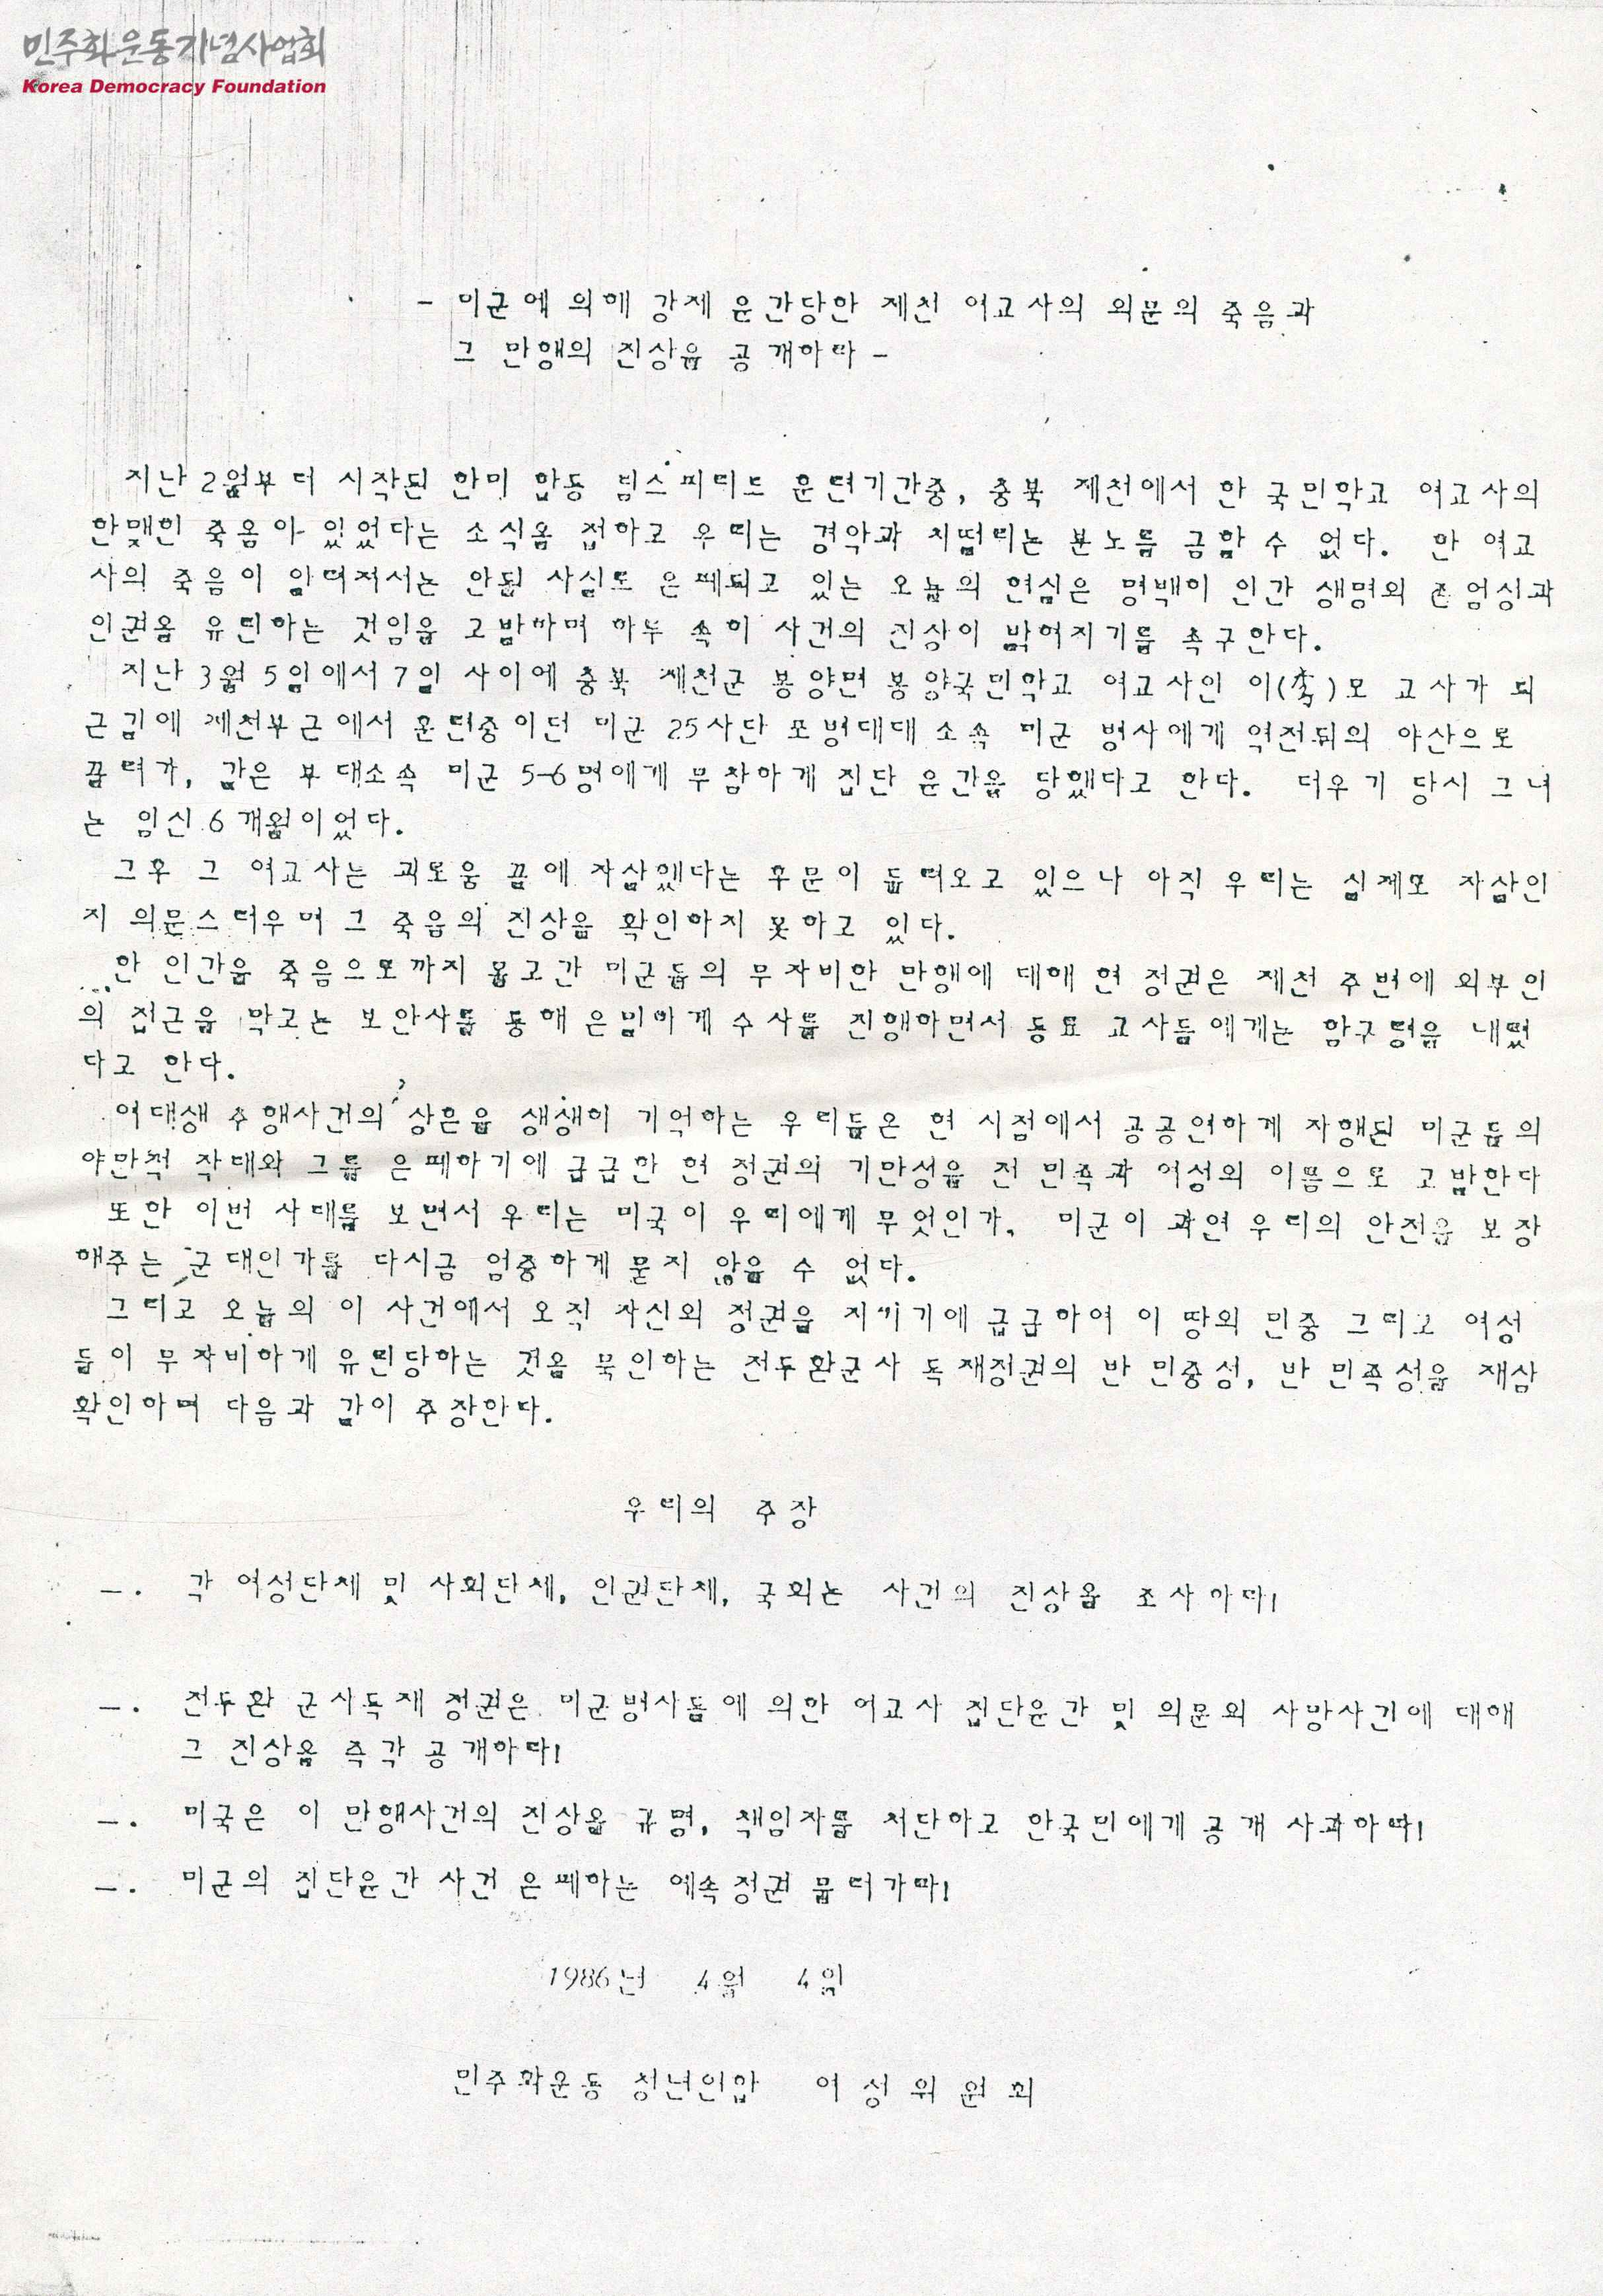 민주화운동기념사업회
Korea Democracy Foundation
- 미군에 의해 강제 윤간당한 제천 여교사의 의문의 죽음과
그 만행의 진상을 공개하라 -
지난 2월부터 시작된 한미 합동 팀스피리트 훈련기간중, 충북 제천에서 한 국민학교 여교사의
한맺힌 죽음이 있었다는 소식을 접하고 우리는 경악과 치떨리는 분노를 금할 수 없다. 한 여교
사의 죽음이 알려져서는 안될 사실로 은폐되고 있는 오늘의 현실은 명백히 인간 생명의 존엄성과
인권을 유린하는 것임을 고발하며 하루 속히 사건의 진상이 밝혀지기를 촉구한다.
지난 3월 5일에서 7일 사이에 충북 제천군 봉양면 봉양국민학교 여교사인 이(李)모 교사가 퇴
근길에 제천부근에서 훈련중이던 미군 25사단 포병대대 소속 미군 병사에게 역전뒤의 야산으로
끌려가, 같은 부대소속 미군 5-6명에게 무참하게 집단 윤간을 당했다고 한다. 더우기 당시 그녀
는 임신 6개월이었다.
그후 그 여교사는 괴로움 끝에 자살했다는 후문이 들려오고 있으나 아직 우리는 실제로 자살인
지 의문스러우며 그 죽음의 진상을 확인하지 못하고 있다.
한 인간을 죽음으로까지 몰고간 미군들의 무자비한 만행에 대해 현 정권은 제천 주변에 외부인
의 접근을 막고는 보안사를 통해 은밀하게 수사를 진행하면서 동료 교사들에게는 함구령을 내렸
다고 한다.
여대생 추행사건의 상흔을 생생히 기억하는 우리들은 현 시점에서 공공연하게 자행된 미군들의
야만적 작태와 그를 은폐하기에 급급한 현 정권의 기만성을 전 민족과 여성의 이름으로 고발한다
또한 이번 사태를 보면서 우리는 미국이 우리에게 무엇인가, 미군이 과연 우리의 안전을 보장
해주는 군대인가를 다시금 엄중하게 묻지 않을 수 없다.
그리고 오늘의 이 사건에서 오직 자신의 정권을 지키기에 급급하여 이 땅의 민중 그리고 여성
들이 무자비하게 유린당하는 것을 묵인하는 전두환군사 독재정권의 반 민중성, 반 민족성을 재삼
확인하며 다음과 같이 주장한다.
우리의 주장
ㅡ. 각 여성단체 및 사회단체, 인권단체, 국회는 사건의 진상을 조사하라!
ㅡ. 전두환 군사독재 정권은 미군병사들에 의한 여교사 집단윤간 및 의문의 사망사건에 대해
그 진상을 즉각 공개하라!
ㅡ. 미국은 이 만행사건의 진상을 규명, 책임자를 처단하고 한국민에게 공개 사과하라!
ㅡ. 미군의 집단윤간 사건 은폐하는 예속정권 물러가라!
1986년 4월 4일
민주화운동 청년연합 여성위원회